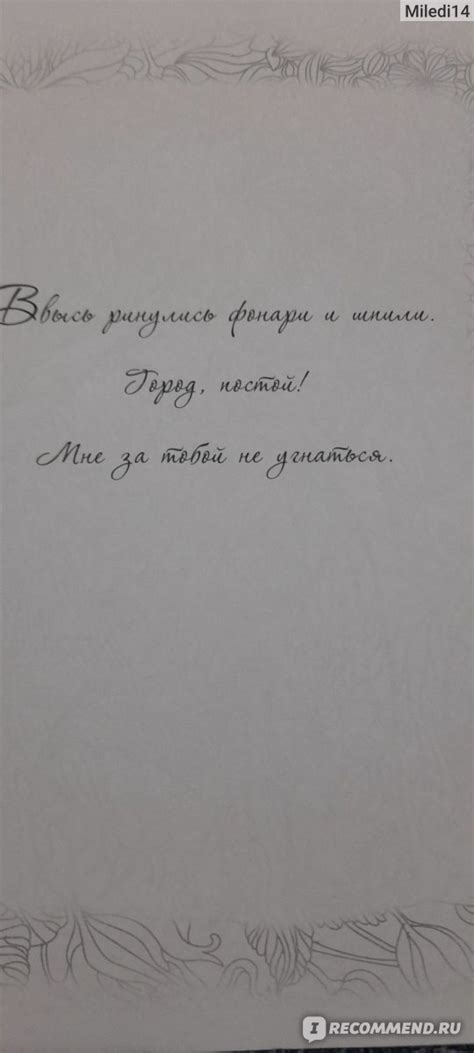 Miledi14
Ввысь ринулись фонари и шпили.
Город, постой!
Мне за тобой не угнаться.
I RECOMMEND.RU